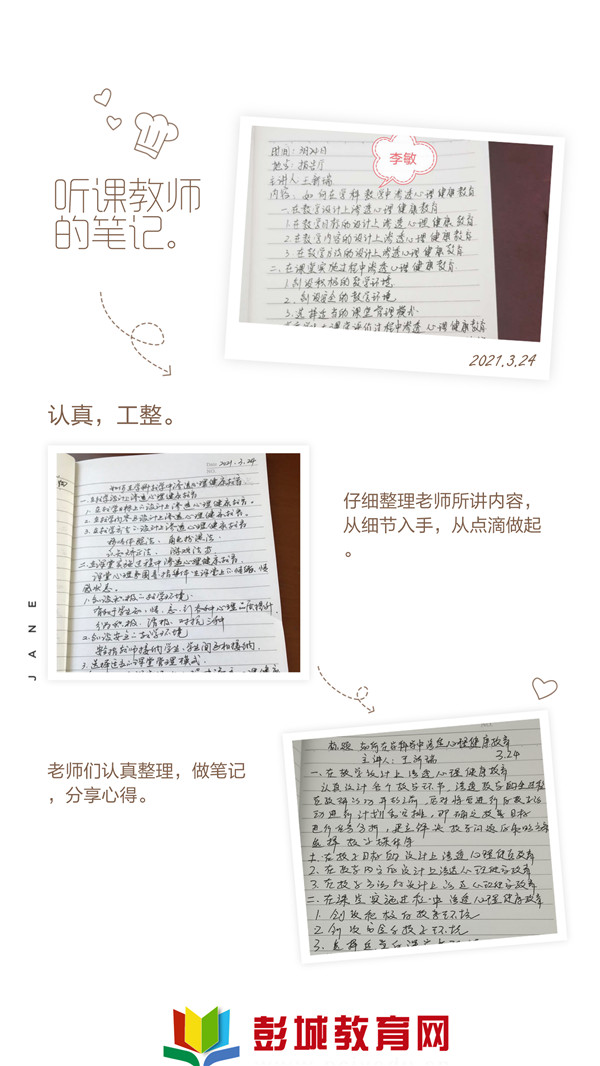 听课教师
的笔记。
李敏
时间：3月24日
地点：报告厅
主讲人：王新瑞
内容：如何在学科教学中渗透心理健康教育
一.在教学设计上渗透心理健康教育
1.在教学目标的设计上渗透心理健康教育
2.在教学内容的设计上渗透心理健康教育
3.在教学方法的设计上渗透心理健康教育
二.在课堂实施过程中渗透心理健康教育
1.创设积极的教学环境
2.创设安全的教学环境
3.选择适当的课堂管理模式
课堂评价过程中渗透心理健康教育
2021.3.24
认真，工整。
2021.3.24
如何在学科教学中渗透心理健康教育
一.在教学设计上渗透心理健康教育
1.在教学目标上的设计上渗透心理健康教育。
2.在教学内容的设计上渗透心理健康教育
3.在教学方法的设计上渗透心理健康教育
角色扮演法
游戏法等
二.在课堂实施过程中渗透心理健康教育
1.创设积极的教学环境：
积极、消极、对抗三种
2.创设安全的教学环境
学生间互相接纳。
3.选择适当的课堂管理模式
仔细整理老师所讲内容，
从细节入手，从点滴做起
。
JANE
老师们认真整理，做笔记
，分享心得。
标题：如何在学科教学中渗透心理健康教育
主讲人：王新瑞 3.24
一.在教学设计上渗透心理健康教育
认真设计各个教学环节，渗透教学的全过程
动进行计划和安排，即确定教学目标
1.在教学目标的设计上渗透心理健康教育
2.在教学内容的设计上渗透心理健康教育
3.在教学方法的设计上渗透心理健康教育
二.在课堂实施过程中渗透心理健康教育
1.创设积极的教学环境
2.创设安全的教学环境
3.选择适当的课堂
彭城教育网